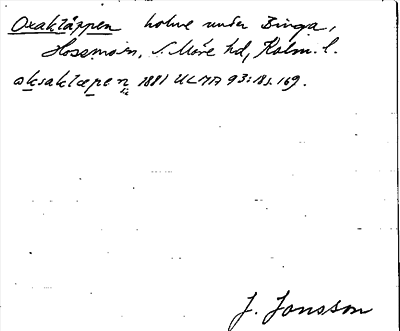 Oxakläppen holme under Binga,
Hossmo sn, N. Möre hd, Kalm. l.
oksaklæpen 1881 ULMA 93:18 s. 169.
J. Jonsson